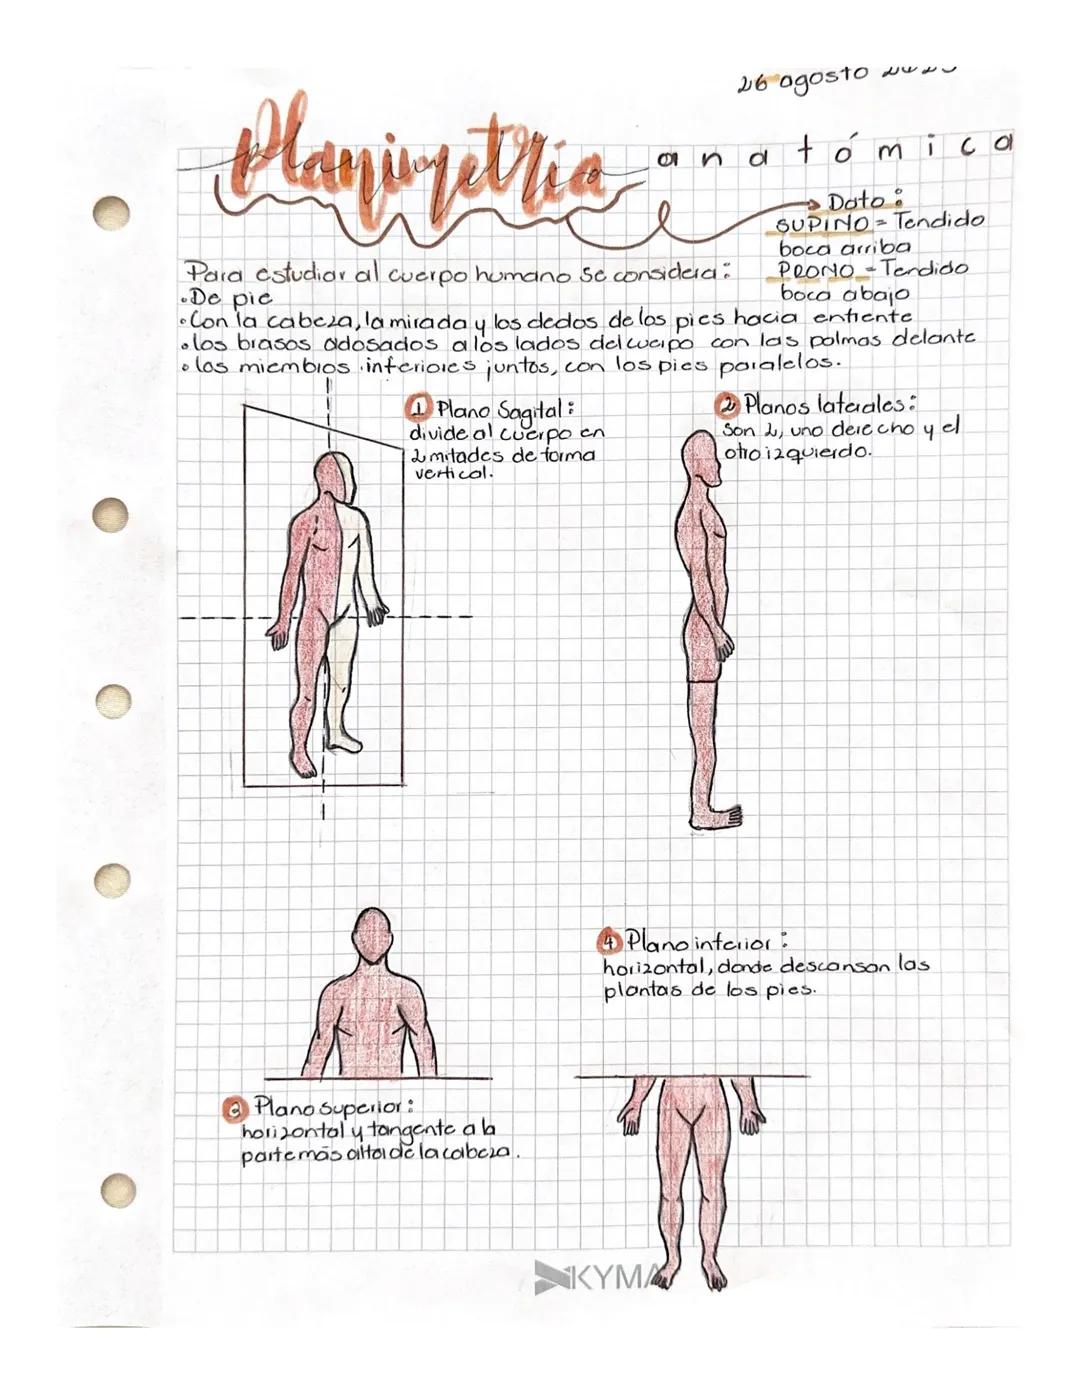 26 agosto
Planimetría anatómica
Dato:
SUPINO = Tendido
boca arriba
PRONO = Tendido
boca abajo
Para estudiar al cuerpo humano se considera:
•De pie
•Con la cabeza, la mirada y los dedos de los pies hacia enfrente
•los brasos adosados a los lados del cuerpo con las palmas delante
•los miembros inferiores juntos, con los pies paralelos.
1 Plano Sagital:
divide al cuerpo en
2 mitades de forma
vertical.
2 Planos laterales:
son 2, uno derecho y el
otro izquierdo.
4 Plano inferior:
horizontal, donde descansan las
plantas de los pies.
3 Plano superior:
horizontal y tangente a la
parte más alta de la cabeza.
KYMA